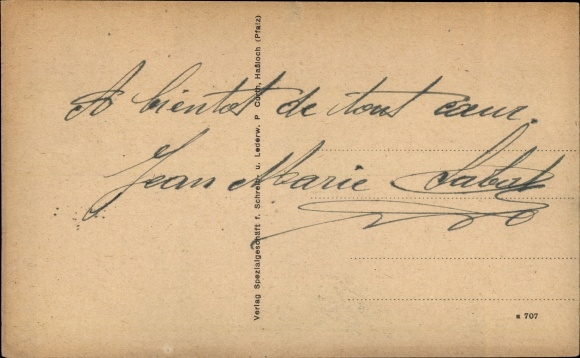 A bientot de tout cœur.
Jean Marie Sabat
Verlag Spezialgeschäft f. Schreib- u. Lederw. P. Curth, Haßloch (Pfalz)
a 707